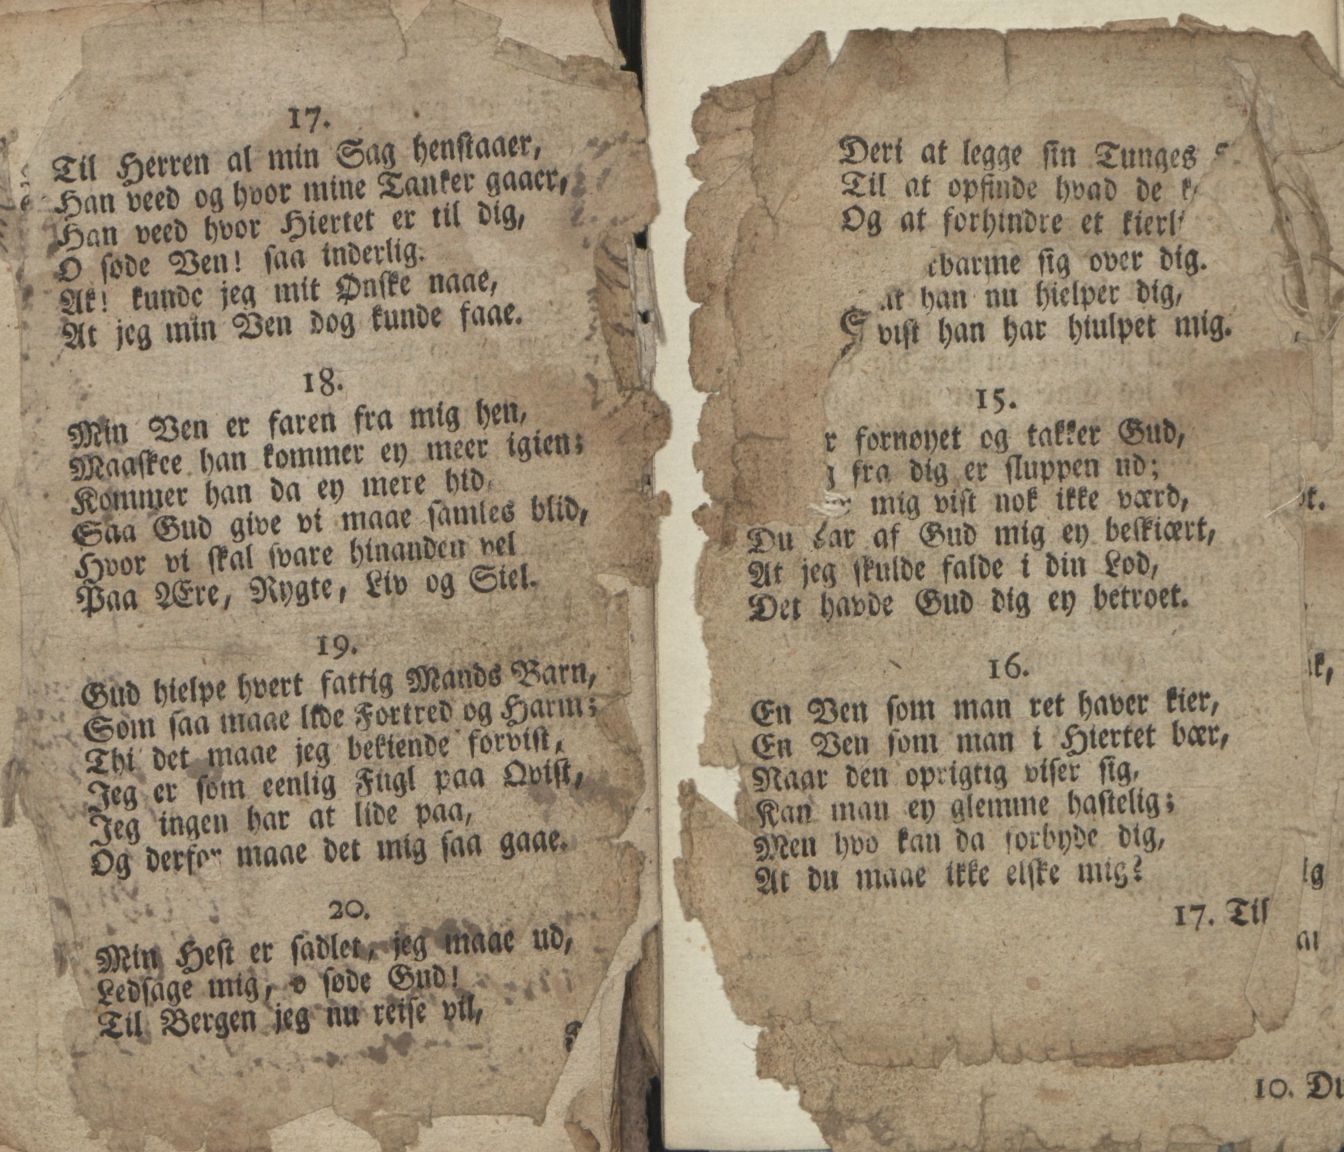 17.
Til Herren al min Sag henstaaer,
Han veed og hvor mine Tanker gaaer,
Han veed hvor Hiertet er til dig,
O søde Ven! saa inderlig.
Ak! kunde jeg mit Ønske naae,
At jeg min Ven dog kunde faae.
18.
Min Ven er faren fra mig hen,
Maaskee han kommer ey meer igien;
Kommer han da ey mere hid,
Saa Gud give vi maae samles blid,
Hvor vi skal svare hinanden vel
Paa Ære, Rygte, Liv og Siel.
19.
Gud hielpe hvert fattig Mands Barn,
Som saa maae lide Fortred og Harm;
Thi det maae jeg bekiende forvist,
Jeg er som eenlig Fugl paa Qvist,
Jeg ingen har at lide paa,
Og derfor maae det mig saa gaae.
20.
Min Hest er sadlet, jeg maae ud,
Ledsage mig, o søde Gud!
Til Bergen jeg nu reise vil,
Deri at legge sin Tunges
Til at opfinde hvad de
Og at forhindre et
sig over dig.
at han nu hielper dig,
vist han har hiulpet mig.
15.
fornøyet og takker Gud,
fra dig er sluppen ud;
mig vist nok ikke værd,
Du har af Gud mig ey beskiært,
At jeg skulde falde i din Lod,
Det havde Gud dig ey betroet.
16.
En Ven som man ret haver kier,
En Ven som man i Hiertet bær,
Naar den oprigtig viser sig,
Kan man ey glemme hastelig;
Men hvo kan da forbyde dig,
At du maae ikke elske mig?
17. Til
10.